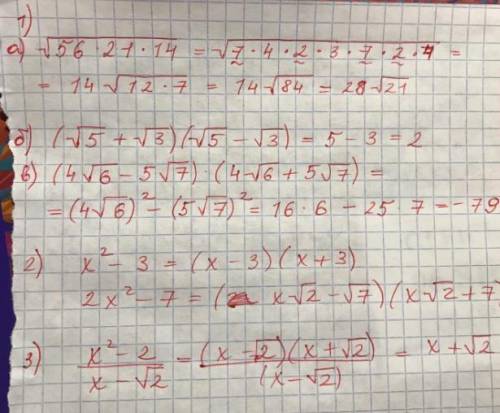 1)
а) √56 · 21 · 14 = √7 · 4 · 2 · 3 · 7 · 2 · 7 =
= 14 √12 · 7 = 14 √84 = 28 √21
б) (√5 + √3)(√5 - √3) = 5 - 3 = 2
в) (4√6 - 5√7) · (4√6 + 5√7) =
= (4√6)² - (5√7)² = 16 · 6 - 25 · 7 = -79
2) x² - 3 = (x - 3)(x + 3)
2x² - 7 = (x√2 - √7)(x√2 + 7
3) x² - 2 / x - √2 = (x - √2)(x + √2) / (x - √2) = x + √2